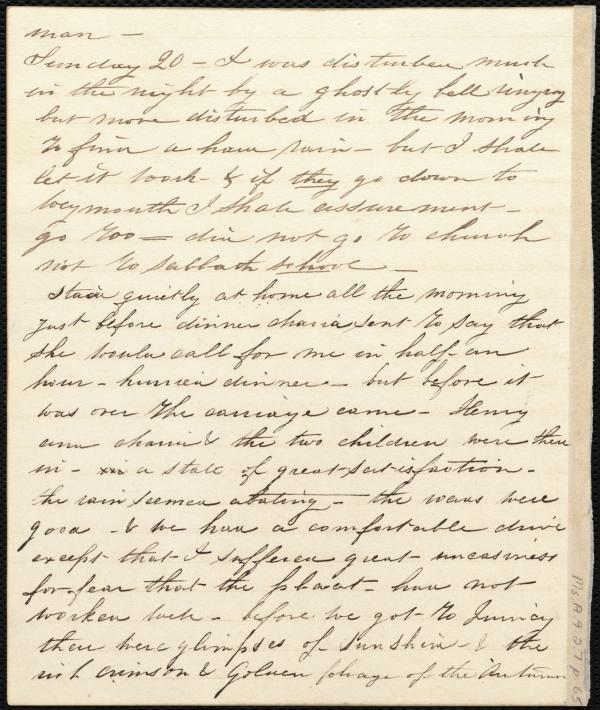 man -
Sunday 20 - I was disturbed much
in the night by a ghostly bell ringing
but more disturbed in the morning
to find a hard rain - but I shall
let it work - & if they go down to
Weymouth I shall assurement -
go too = did not go to church
not to sabbath school -
Staid quietly at home all the morning
just before dinner sent to say that
she would call for me in half an
hour - hurried dinner - but before it
was over the carriage came - Henry
and & the two children were there
in - a state of great satisfaction -
the rain seemed abating - the roads were
good - & we had a comfortable drive
except that I suffered great uneasiness
for fear that the had not
worked well - before we got to Quincy
there were glimpses of sunshine - & the
rich crimson & golden foliage of the Autumn
Ms A 9.2.7 p 65